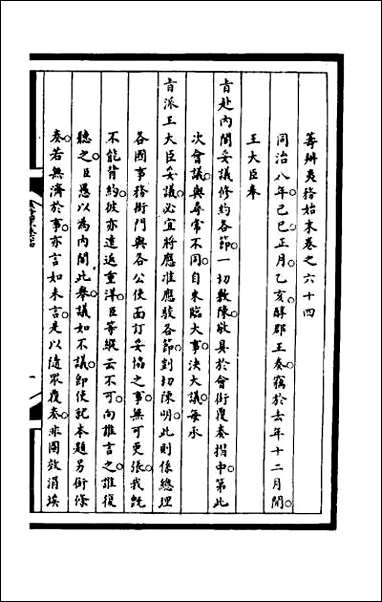 籌辦夷務始末卷之六十四
同治八年己巳正月乙亥醇郡王奏竊於去年十二月間
王大臣奉
旨赴內閣妥議修約各節一切敷陳敬具於會銜覆奏摺中第此
次會議與尋常不同自來臨大事決大議每承
旨派王大臣妥議必宜將應准應駁各節剴切陳明此則係總理
各國事務衙門與各公使面訂妥協之事無可更張我既
不能背約彼亦遠返重洋臣等縱云不可向誰言之誰復
聽之臣愚以為內閣此舉議如不議即使記本題另銜條
奏若無濟於事亦言如未言是以隨眾覆奏非關效涓埃